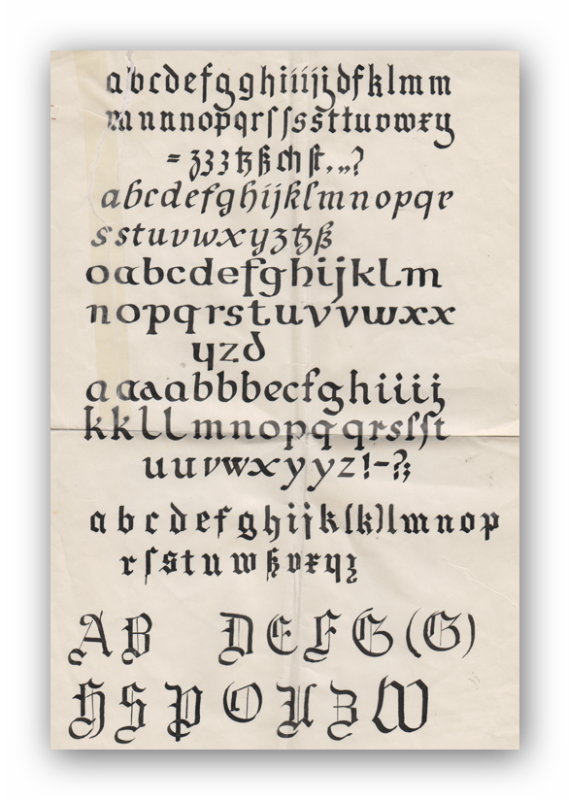 abcdefgghiiijjzdfklmm
mnnnnopqrſſsšttuvwxy
= zzz tz ß ch ſt . ,, ?
abcdefghijklmnopqr
sstuvwxyztzß
oabcdefghijklm
nopqrstuvvwxx
yzd
aaaabbbecfghiiij
kkllmnopqqrsſſt
uuvwxyyz!-?;
abcdefghijk(k)lmnop
rſstuwßvxyz
AB DEFG(G)
HSPOUZW